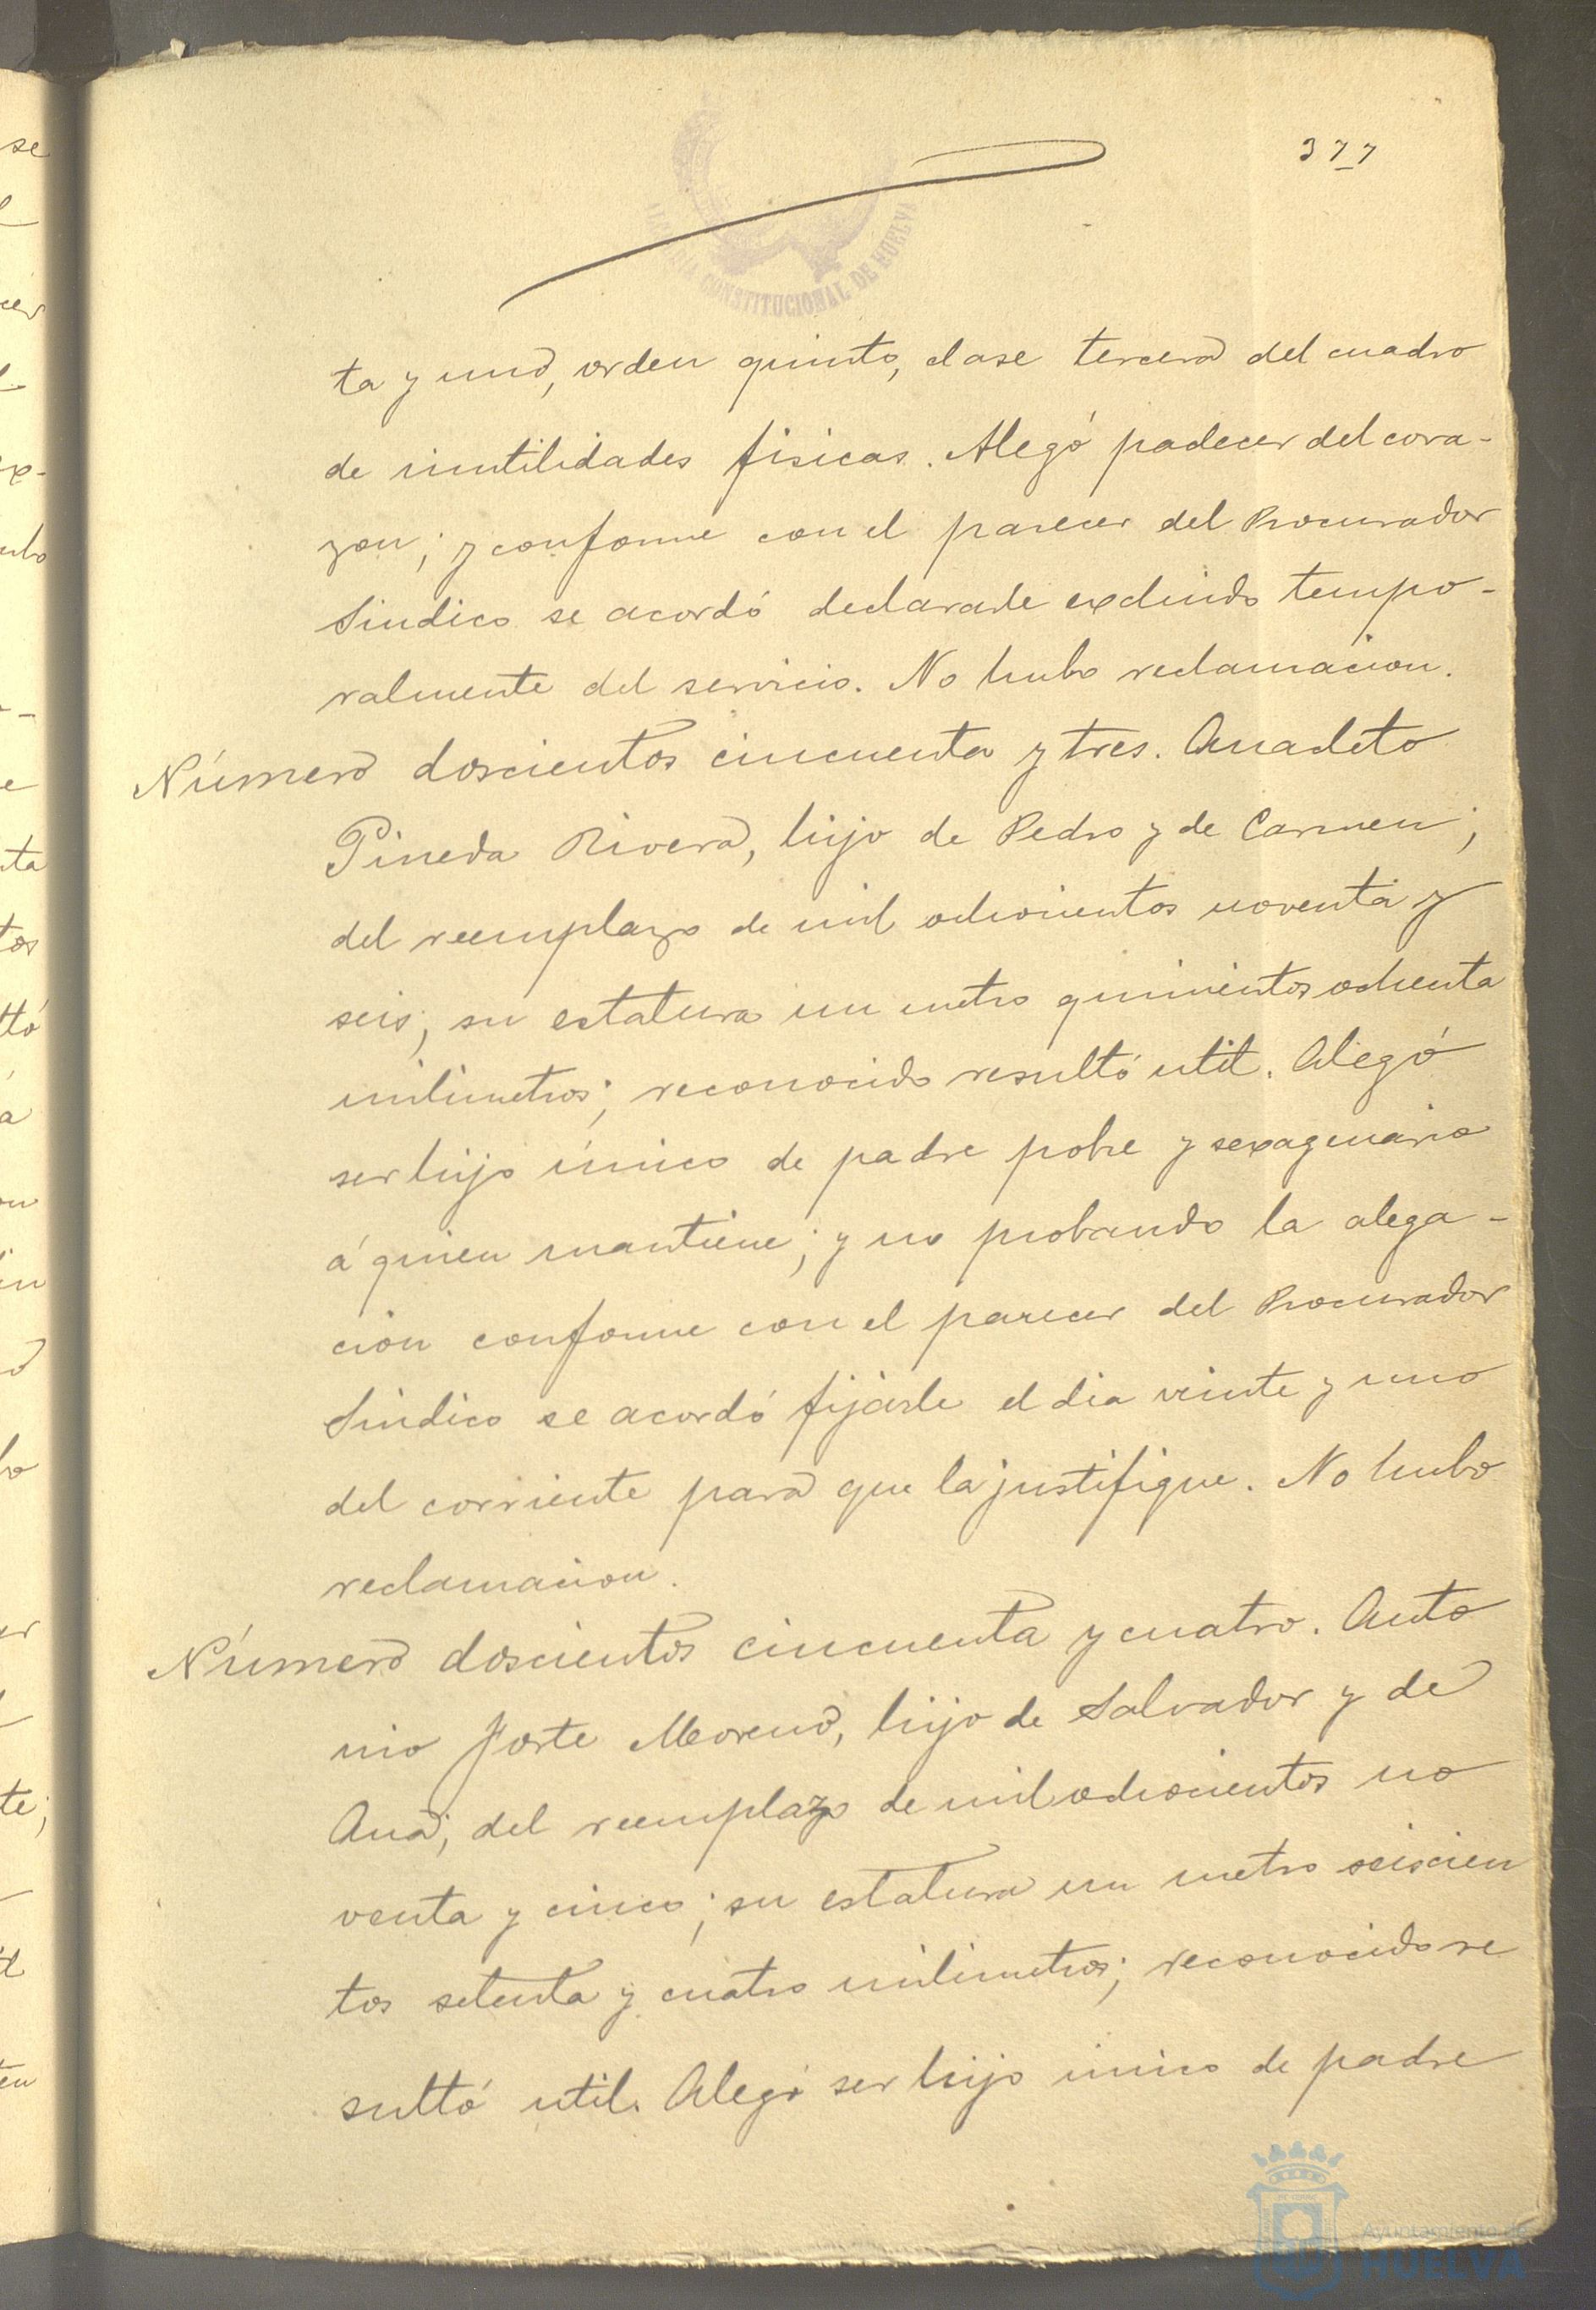 377
ALCALDIA CONSTITUCIONAL DE HUELVA
ta y uno, orden quinto, clase tercera del cuadro
de inutilidades fisicas. Alegó padecer del cora-
zon; y conforme con el parecer del Procurador
Sindico se acordó declararle excluido tempo-
ralmente del servicio. No hubo reclamacion.
Número doscientos cincuenta y tres. Anacleto
Pineda Rivera, hijo de Pedro y de Carmen;
del reemplazo de mil ochocientos noventa y
seis; su estatura un metro quinientos ochenta
milimetros; reconocido resultó util. Alegó
ser hijo único de padre pobre y sexagenario
á quien mantiene; y no probando la alega-
cion conforme con el parecer del Procurador
Sindico se acordó fijarle el dia veinte y uno
del corriente para que la justifique. No hubo
reclamacion.
Número doscientos cincuenta y cuatro. Anto
nio Forte Moreno, hijo de Salvador y de
Ana; del reemplazo de mil ochocientos no
venta y cinco; su estatura un metro seiscien
tos setenta y cuatro milimetros; reconocido re
sultó util. Alegó ser hijo único de padre
Ayuntamiento de
HUELVA